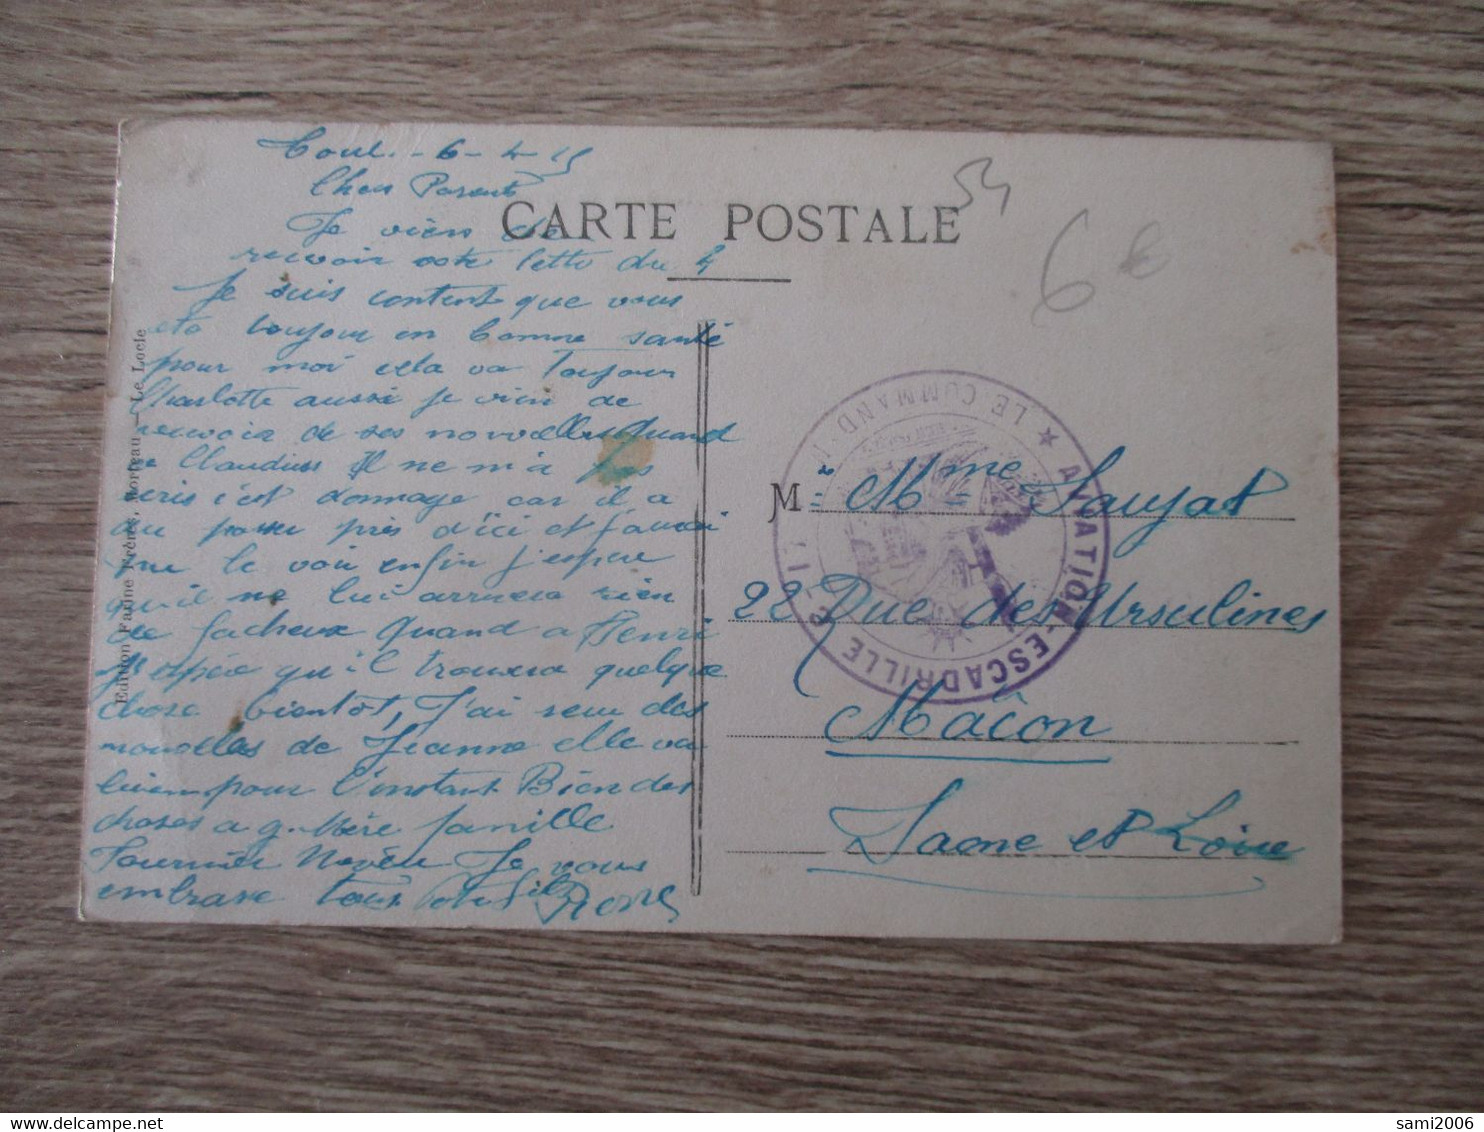 Toul - 6 - 4 - 15
Chers Parents
CARTE POSTALE
54
6 €
Je viens de
recevoir votre lettre du 4
Je suis content que vous
ete toujour en bonne santé
pour moi cela va Toujours
Charlotte aussi je vien de
recevoir de ses nouvelles Quand
a Claudius Il ne m'a pas
écris c'est dommage car il a
du passer près d'ici et j'aurai
pue le voir enfin j'espere
qu'il ne lui arrivera rien
de facheux Quand a Henri
J'espère qu'il trouvera quelque
chose bientôt, J'ai reçu des
nouvelles de Jeanne elle va
bien pour l'instant Bien des
choses a g. Mère famille
Fournier Je vous
embrasse tous
Edition Faivre Frères, Morteau — Le Locle
★ AVIATION-ESCADRILLE
LE COMMAND
M. et Mme Saujat
22 Rue des Ursulines
Mâcon
Saone et Loire
sami2006